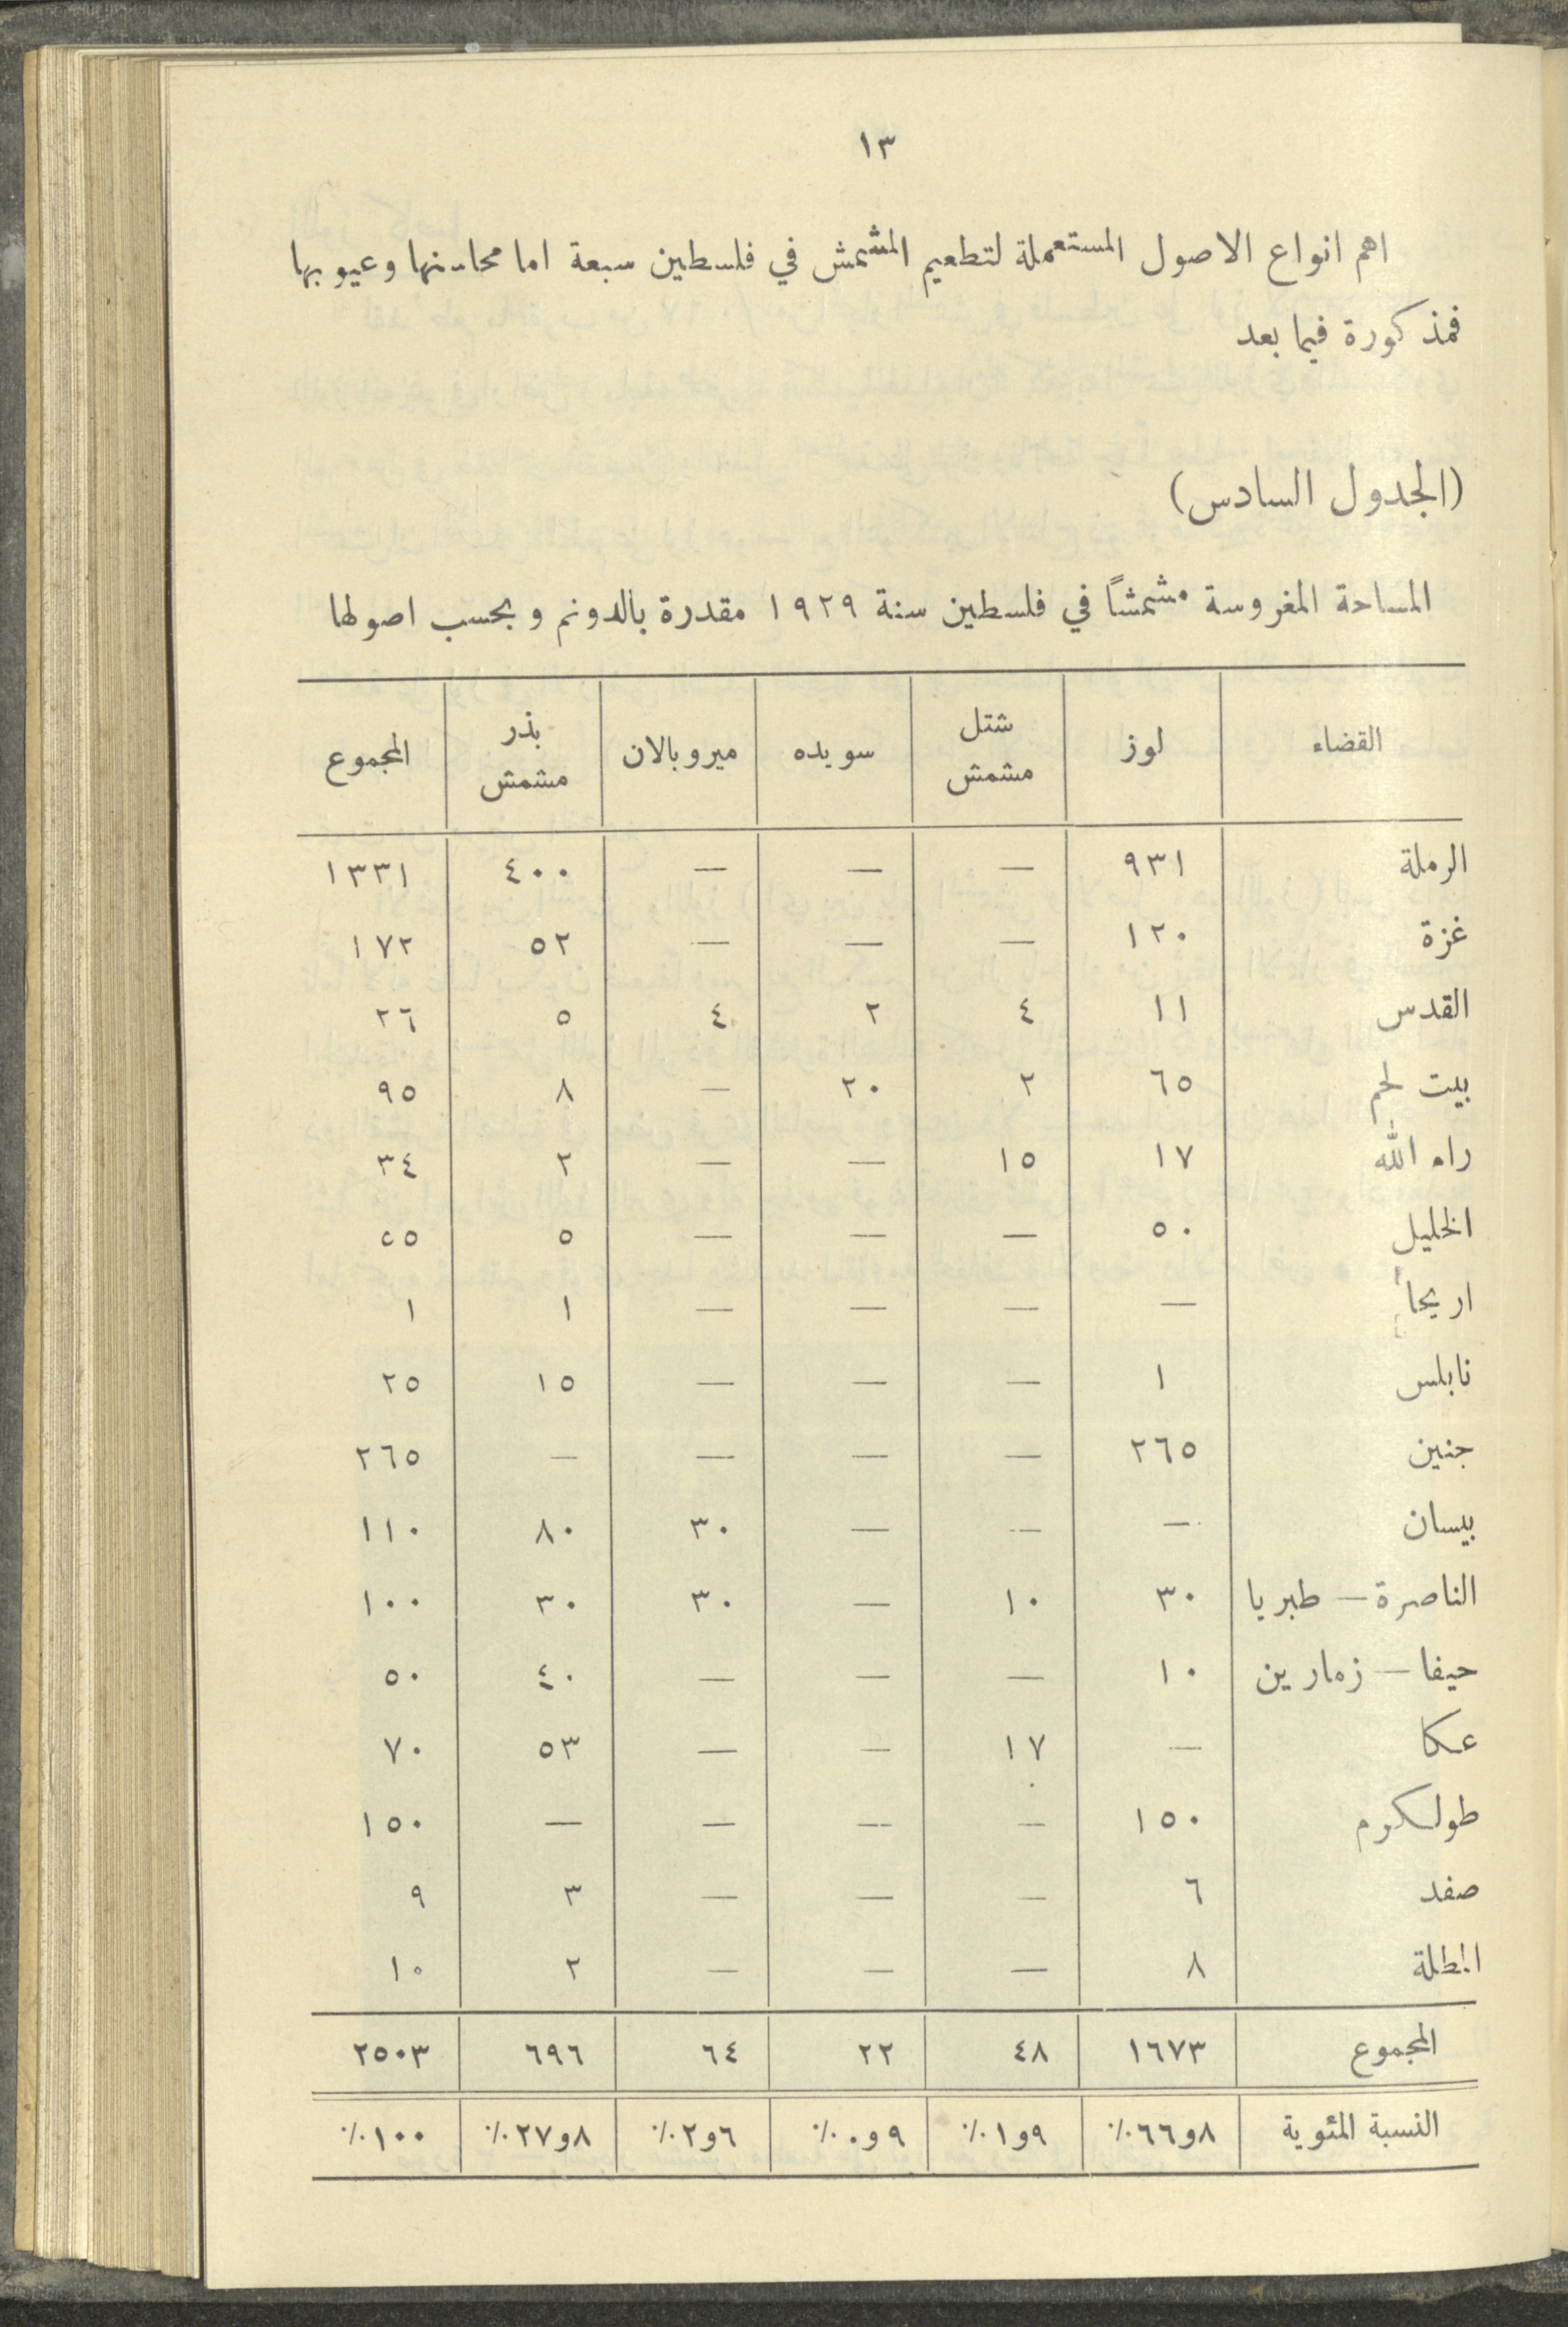 ١٣
اهم انواع الاصول المستعملة لتطعيم المشمش في فلسطين سبعة اما محاسنها وعيوبها
فمذكورة فيما بعد
(الجدول السادس)
المساحة المغروسة مشمشاً في فلسطين سنة ١٩٢٩ مقدرة بالدونم وبحسب اصولها
القضاء لوز شتل مشمش سويده ميروبالان بذر مشمش المجموع
الرملة ٩٣١ — — — ٤٠٠ ١٣٣١
غزة ١٢٠ — — — ٥٢ ١٧٢
القدس ١١ ٤ ٢ ٤ ٥ ٢٦
بيت لحم ٦٥ ٢ ٢٠ — ٨ ٩٥
رام الله ١٧ ١٥ — — ٢ ٣٤
الخليل ٥٠ — — — ٥ ٥٥
اريحا — — — — ١ ١
نابلس ١ — — — ١٥ ٢٥
جنين ٢٦٥ — — — — ٢٦٥
بيسان — — — ٣٠ ٨٠ ١١٠
الناصرة — طبريا ٣٠ ١٠ — ٣٠ ٣٠ ١٠٠
حيفا — زمارين ١٠ — — — ٤٠ ٥٠
عكا — ١٧ — — ٥٣ ٧٠
طولكرم ١٥٠ — — — — ١٥٠
صفد ٦ — — — ٣ ٩
المطلة ٨ — — — ٢ ١٠
المجموع ١٦٧٣ ٤٨ ٢٢ ٦٤ ٦٩٦ ٢٥٠٣
النسبة المئوية ٨و٦٦٪ ٩و١٪ ٩و٠٪ ٦و٢٪ ٨و٢٧٪ ١٠٠٪